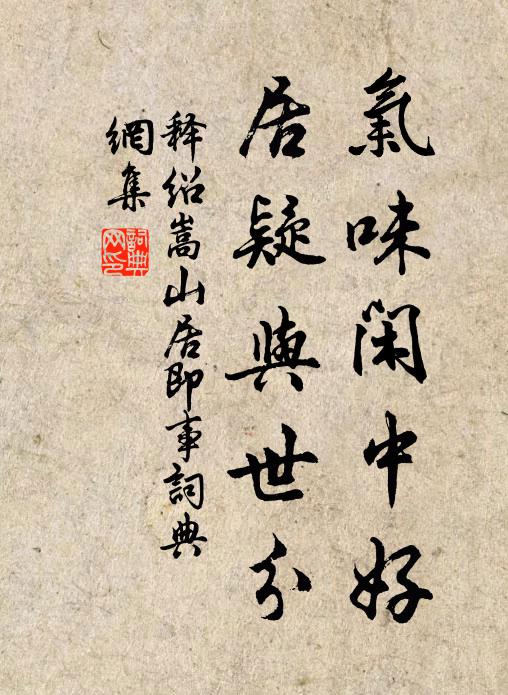 氣味閑中好
居疑與世分
釋绍嵩山居即事詞典
網集
詞典
网印